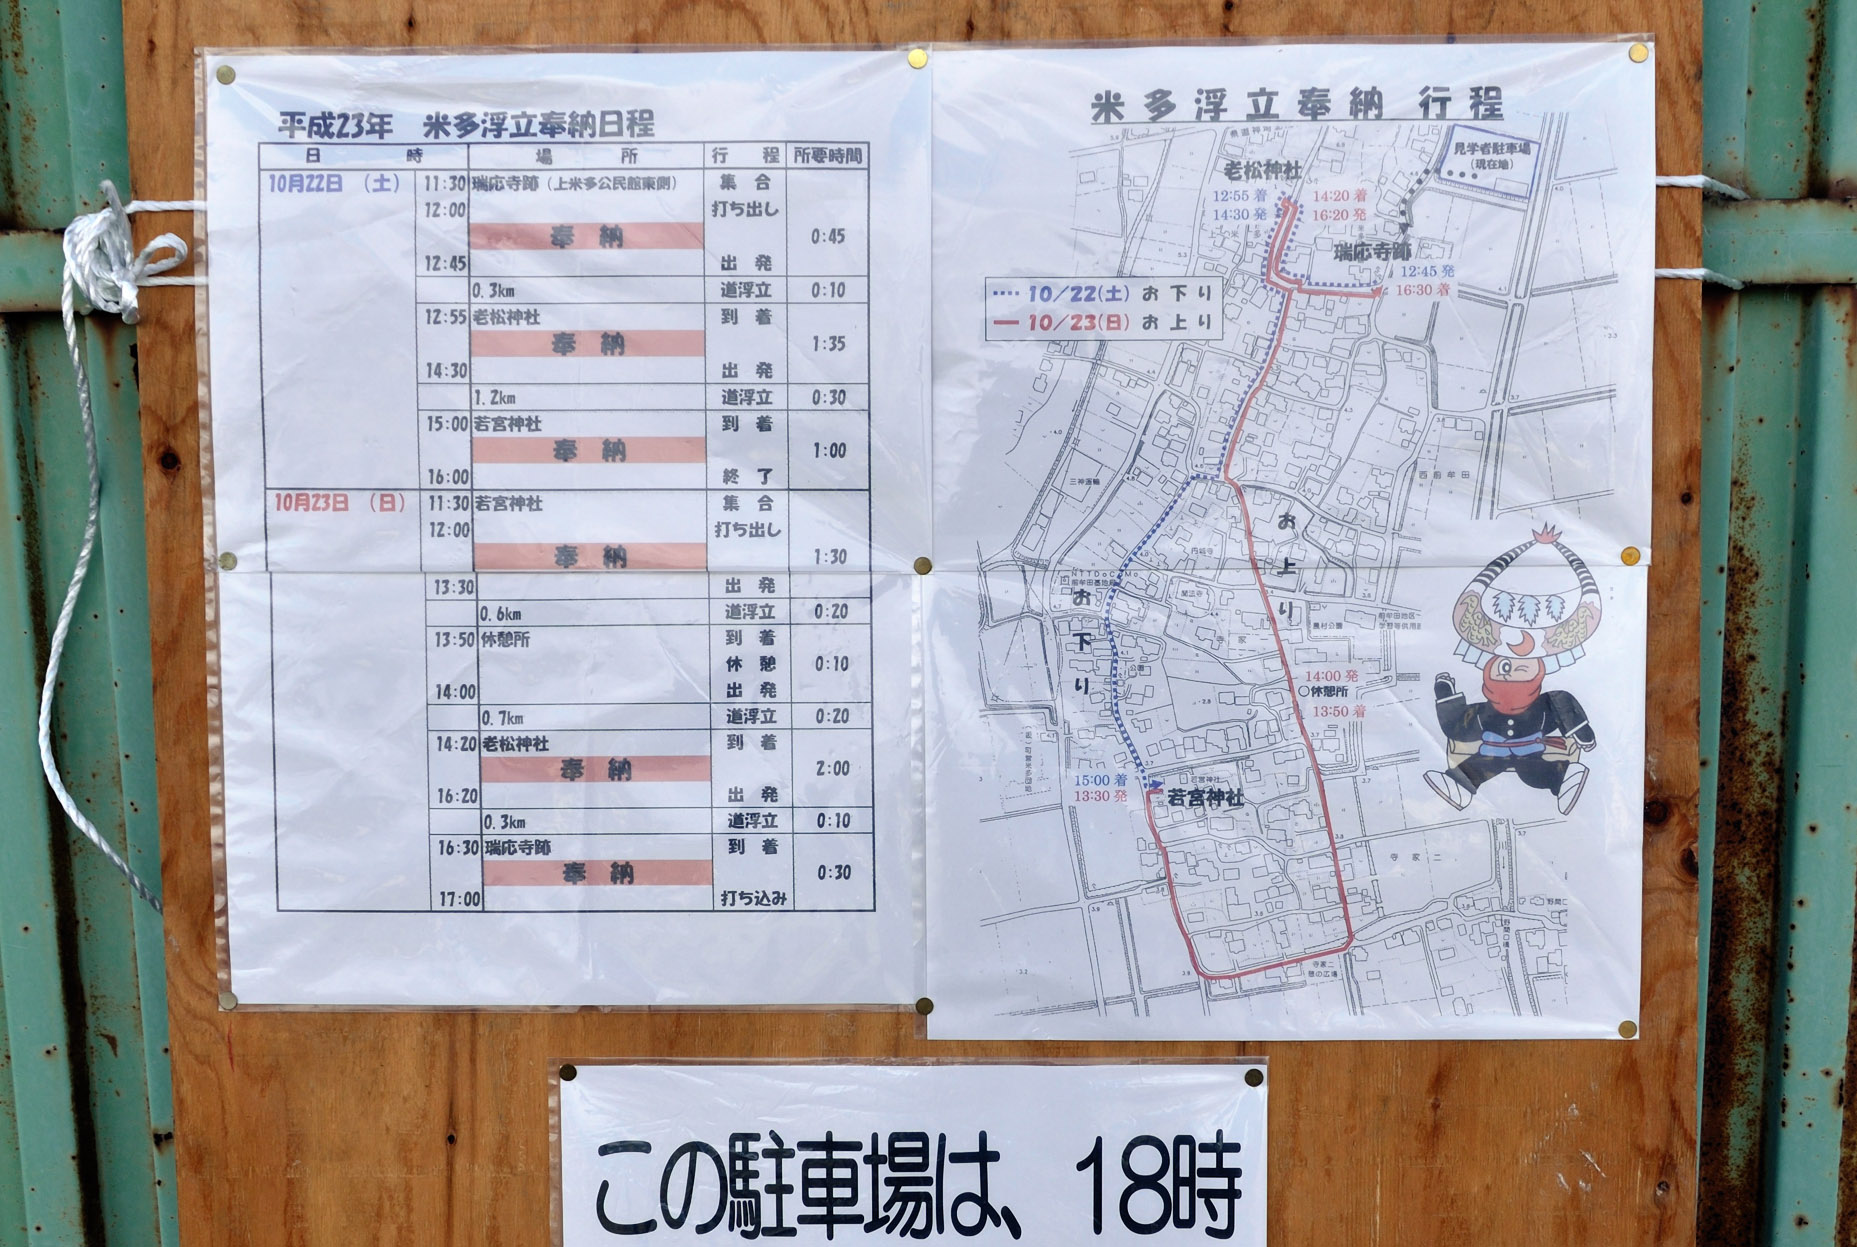 平成23年 米多浮立奉納日程
日 時 場 所 行 程 所要時間
10月22日 (土) 11:30 瑞応寺跡 (上米多公民館東側) 集 合
12:00 打ち出し
奉 納 0:45
12:45 出 発
0.3km 道浮立 0:10
12:55 老松神社 到 着
奉 納 1:35
14:30 出 発
1.2km 道浮立 0:30
15:00 若宮神社 到 着
奉 納 1:00
16:00 終 了
10月23日 (日) 11:30 若宮神社 集 合
12:00 打ち出し
奉 納 1:30
13:30 出 発
0.6km 道浮立 0:20
13:50 休憩所 到 着
休 憩 0:10
14:00 出 発
0.7km 道浮立 0:20
14:20 老松神社 到 着
奉 納 2:00
16:20 出 発
0.3km 道浮立 0:10
16:30 瑞応寺跡 到 着
奉 納 0:30
17:00 打ち込み
米多浮立奉納 行程
見学者駐車場
(現在地)
老松神社
12:55 着 14:20 着
14:30 発 16:20 発
瑞応寺跡
12:45 発
16:30 着
10/22(土) お下り
10/23(日) お上り
三神運輸
西前牟田
お上り
円城寺
NTTDoCoMo
お下り
寺家
農村公園
公園
14:00 発
休憩所
13:50 着
15:00 着
13:30 発
若宮神社
若宮神社
寺家二
野間口
野間口橋
寺家二
憩の広場
この駐車場は、18時